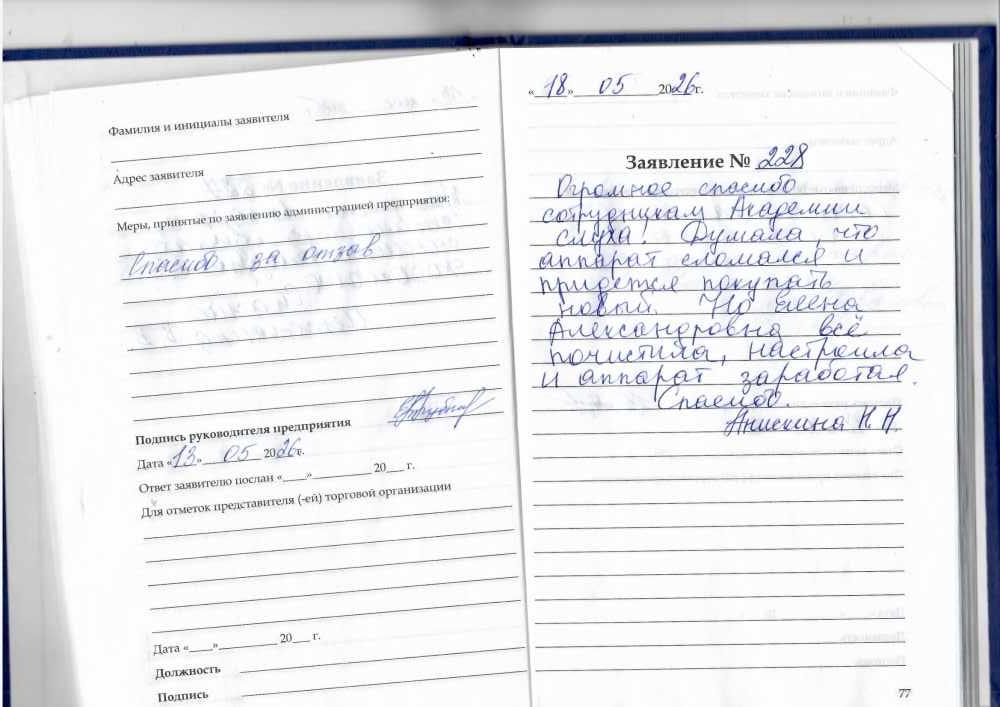 Фамилия и инициалы заявителя
Адрес заявителя
Меры, принятые по заявлению администрацией предприятия:
Спасибо за отзыв
Подпись руководителя предприятия
Дата «13» 05 2026г.
Ответ заявителю послан «____»__________ 20___ г.
Для отметок представителя (-ей) торговой организации
Дата «____»__________ 20___ г.
Должность
Подпись
«18» 05 2026г.
Заявление № 228
Огромное спасибо
сотрудникам Академии
слуха! Думала, что
аппарат сломался и
придется покупать
новый. Но Елена
Александровна всё
почистила, настроила
и аппарат заработал.
Спасибо.
Анискина Н.Н.
77